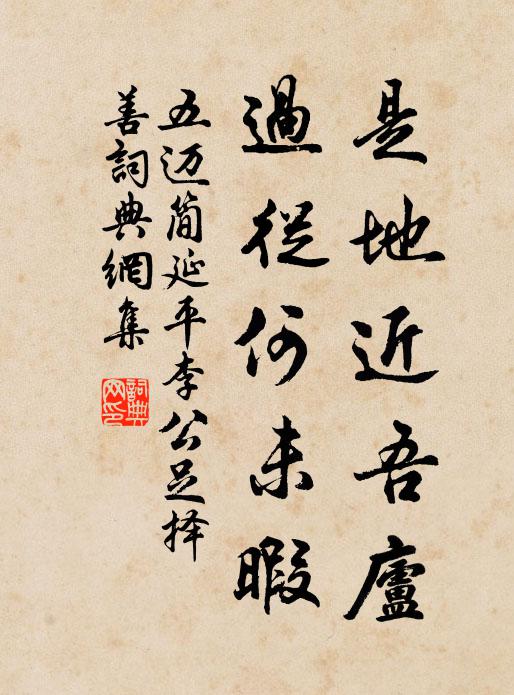 是地近吾廬
過從何未暇
五迈简延平李公足择
善詞典網集
詞典
网印